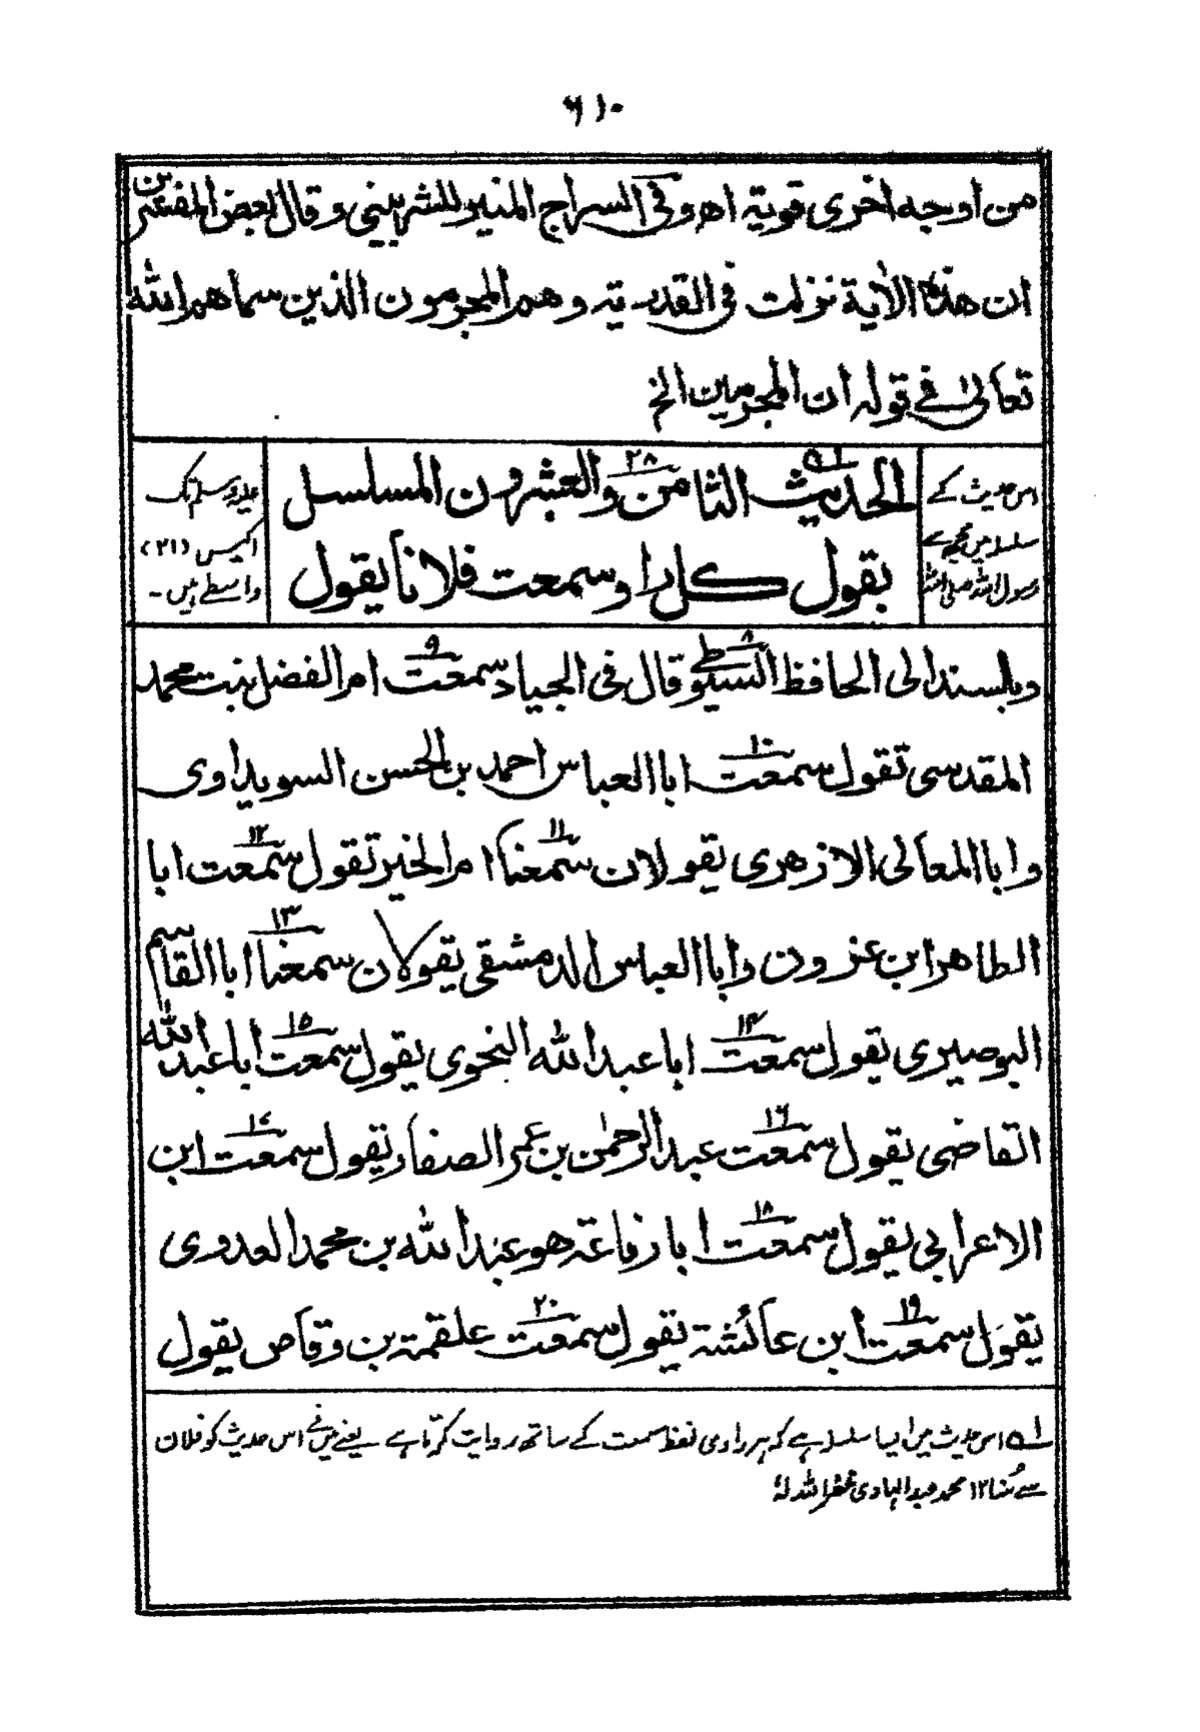 ٦١٠
من أوجه أخرى قوية اھ وفى السراج المنير للشربيني وقال بعض المفسرين
ان هذه الأية نزلت فى القدرية وهم المجرمون الذين سماهم الله
تعالىٰ فے قوله ان المجرمين الخ
اس حدیث کے
سلسلہ میں مجھ سے
رسول اللہ صلی اللہ
الحديث الثامن والعشرون المسلسل ٢٨ ١ـه
بقول كل راو سمعت فلانا يقول
علیہ وسلم تک
اکیس (۲۱)
واسطے ہیں۔
وبالسند الى الحافظ السيوطي ٨ وقال فى الجياد سمعت ٩ ام الفضل بنت محمد
المقدسى تقول سمعت ١٠ ابا العباس احمد بن الحسن السويداوى
وابا المعالى الازهرى يقولان سمعنا ١١ ام الخير تقول سمعت ١٢ ابا
الطاهر ابن عزون وابا العباس الدمشقى يقولان سمعنا ١٣ ابا القاسم
البوصيرى يقول سمعت ١٤ ابا عبد الله النحوى يقول سمعت ١٥ ابا عبد الله
القاضى يقول سمعت ١٦ عبد الرحمٰن بن عمر الصفار يقول سمعت ١٧ ابن
الاعرابي يقول سمعت ١٨ ابا رفاعة هو عبد الله بن محمد العدوى
يقول سمعت ١٩ ابن عائشة يقول سمعت ٢٠ علقمة بن وقاص يقول
١ـه اس حدیث میں ایسا سلسلہ ہے کہ ہر راوی لفظ سمعت کے ساتھ روایت کرتا ہے یعنے میں نے اس حدیث کو فلان
سے سُنا ١٢ محمد عبد الہادی غفر اللہ لہٗ